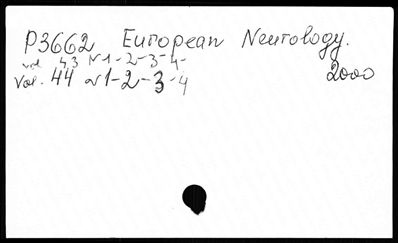 P3662 European Neurology.
vol 43 N 1-2-3-4-
Vol. 44 N 1-2-3-4
2000